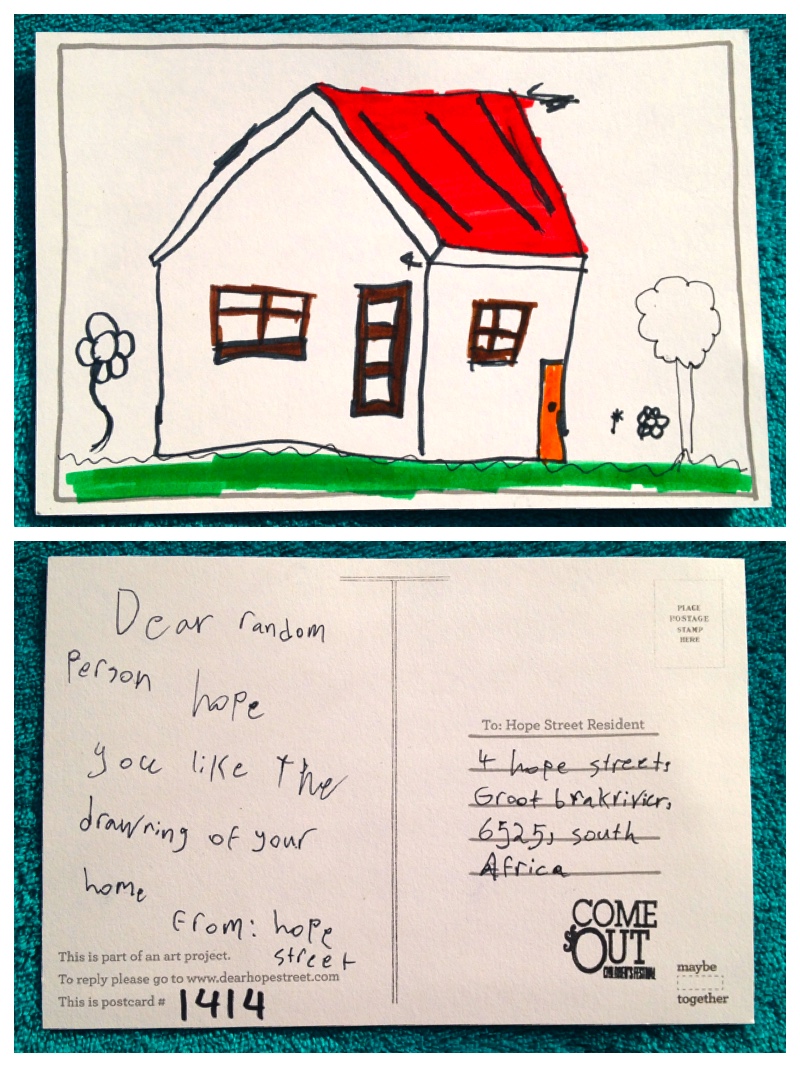 Dear random
person hope
you like the
drawning of your
home
From: hope
street
This is part of an art project.
To reply please go to www.dearhopestreet.com
This is postcard # 1414
PLACE
POSTAGE
STAMP
HERE
To: Hope Street Resident
4 hope street,
Groot brakrivier,
6525, south
Africa
COME
OUT
CHILDREN'S FESTIVAL
maybe
together